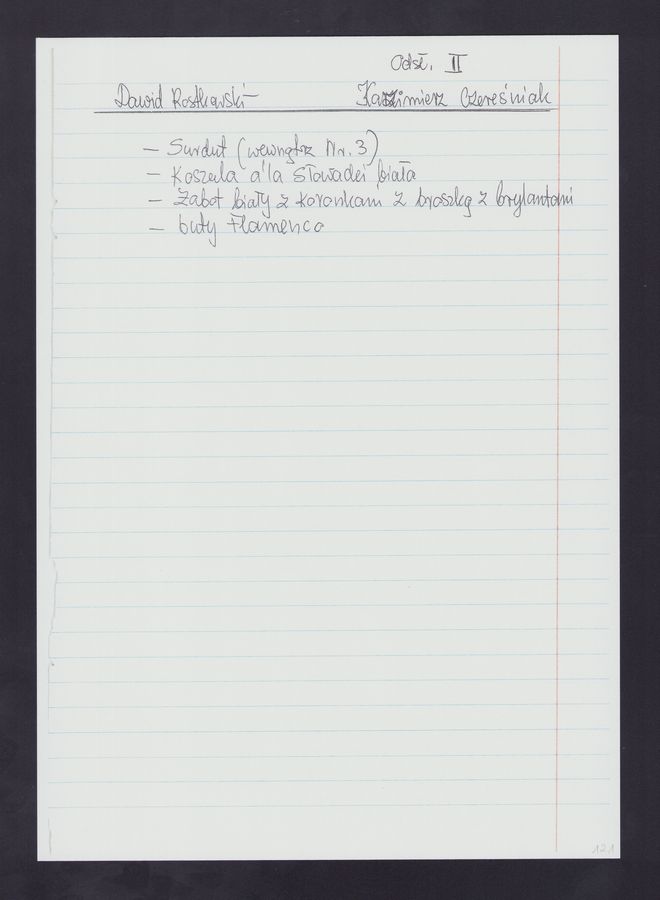 Odsł. II
Dawid Rostkowski Kazimierz Czereśniak
- Surdut (wewnątrz Nr. 3)
- Koszula a'la Słowacki biała
- Żabot biały z koronkami z broszką z brylantami
- buty Flamenco
121